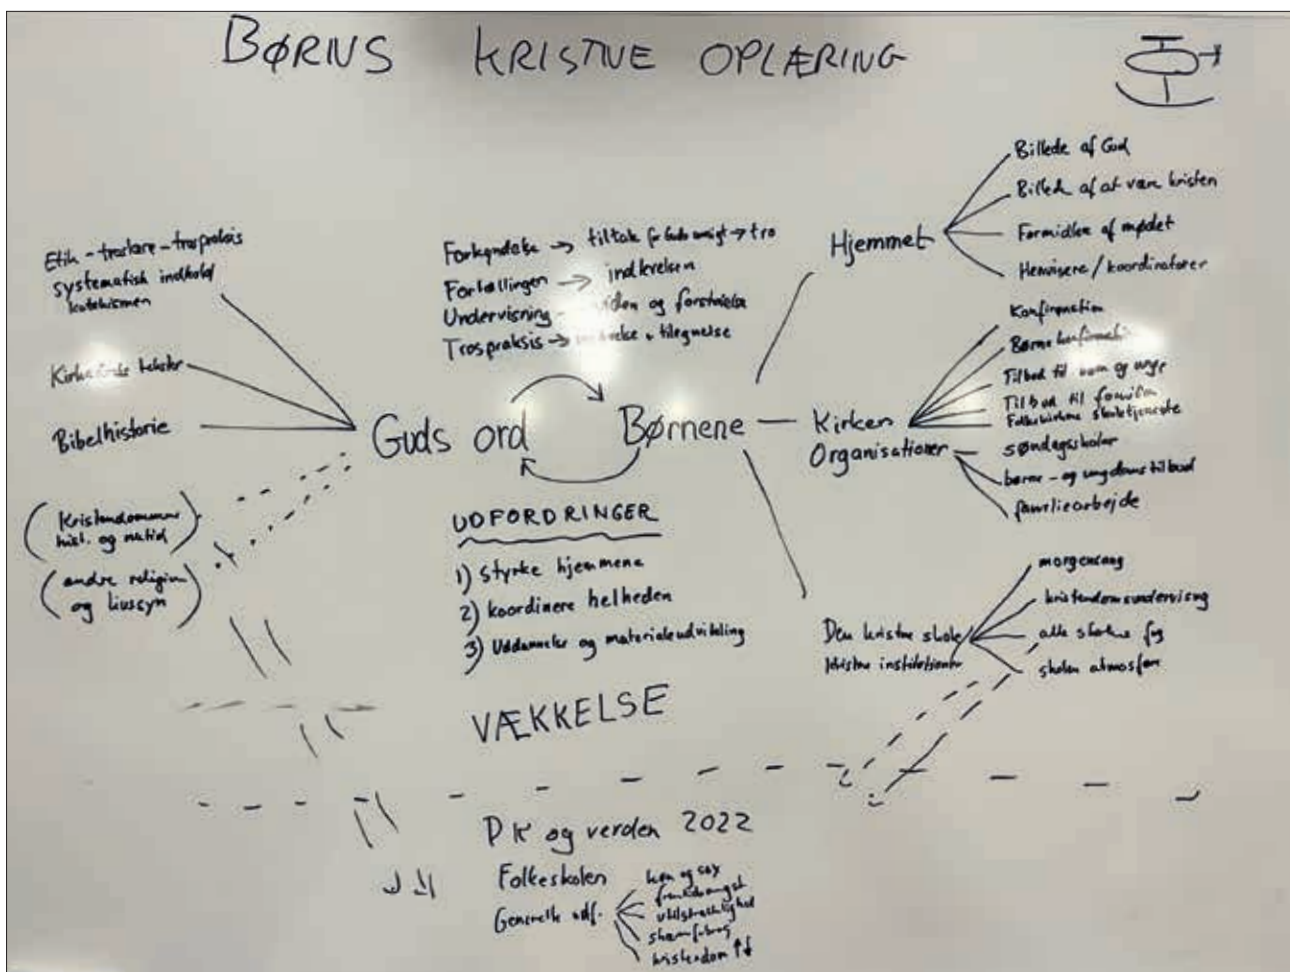 BØRNS KRISTNE OPLÆRING
Etik - troslære - trospraksis
systematisk indhold
katekismen
tekster
Bibelhistorie
(Kristendommens
hist. og nutid)
(andre religion
og livssyn)
Forkyndelse → tiltale for Guds ansigt → tro
Fortællingen → indlevelsen
Undervisning - viden og forståelse
Trospraksis → + tilegnelse
Guds ord
Børnene
UDFORDRINGER
1) styrke hjemmene
2) koordinere helheden
3) Uddannelse og materialeudvikling
Hjemmet
Billede af Gud
Billede af at være kristen
Formidler af mødet
Henvisere / koordinatorer
Kirken
Organisationer
Konfirmation
Børnekonfirmati
Tilbud til børn og unge
Tilbud til familien
Folkekirkens skoletjeneste
søndagsskoler
børne- og ungdomstilbud
familiearbejde
Den kristne skole
kristne institutioner
morgensang
kristendomsundervisng
alle skolens fag
skolen atmosfære
VÆKKELSE
DK og verden 2022
Folkeskolen
Generelle udf.
køn og sex
fremtidsangst
utilstrækkelighed
kristendom ↑↓